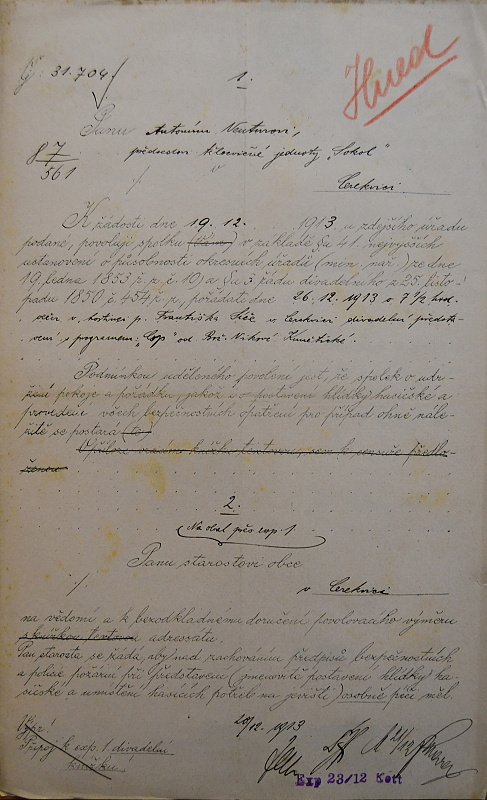 31.704/
1.
Ihned
Panu Antonínu Venturovi,
87/561
předsedovi tělocvičné jednoty „Sokol"
Cerekvici
K žádosti dne 19.12. 1913 u zdejšího úřadu
podané, povoluji spolku v základě §u 41. nejvyšších
ustanovení o působnosti okresních úřadů (min. nař.) ze dne
19. ledna 1853 ř. z. č. 10) a §u 3. řádu divadelního z 25. listo-
padu 1850 č. 454 ř. z., pořádati dne 26.12.1913 o 7 1/2 hod.
večer v hostinci p. Františka v Cerekvici divadelní předsta-
vení s programem: „Cop" od Bož. Vikové Kunětické.
Podmínkou uděleného povolení jest, že spolek o udr-
žení pokoje a pořádku, jakož i o postavení hlídky hasičské a
provedení všech bezpečnostních opatření pro případ ohně nále-
žitě se postará
předlo-
ženou
2.
Na obal přes exp. 1
Panu starostovi obce
v Cerekvici
na vědomí a k bezodkladnému doručení povolovacího výměru
s knížkou textovou adressatu.
Pan starosta se žádá, aby nad zachováním předpisů bezpečnostních
a policie požární při představení (zejmenovitě postavení hlídky ha-
sičské a umístění hasicích potřeb na jevišti) osobně péči měl.
20/12. 1913
Připoj k exp. 1 divadelní
knížku.
Exp 23/12 Kott